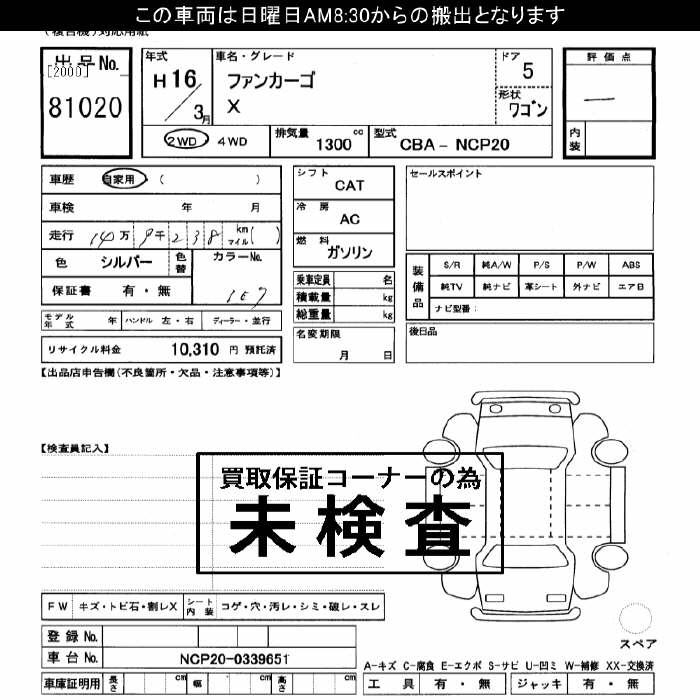 この車両は日曜日AM8:30からの搬出となります
出品No.
[2000]
81020
年式
H 16
3月
車名・グレード
ファンカーゴ
X
ドア
5
形状
ワゴン
評価点
―
内装
2WD 4WD
排気量 1300 cc
型式 CBA - NCP20
車歴 自家用 ( )
車検 年 月
走行 14万 9千 2 3 8 km マイル ( )
色 シルバー 色替
カラーNo.
保証書 有・無
1E7
モデル年式 年 ハンドル 左・右 ディーラー・並行
リサイクル料金 10,310 円 預託済
シフト
CAT
冷房
AC
燃料
ガソリン
乗車定員 名
積載量 kg
総重量 kg
名変期限
月 日
セールスポイント
装備品
S/R 純A/W P/S P/W ABS
純TV 純ナビ 革シート 外ナビ エアB
ナビ型番:
後日品
【出品店申告欄(不良箇所・欠品・注意事項等)】
【検査員記入】
買取保証コーナーの為
未検査
FW キズ・トビ石・割レX シート内装 コゲ・穴・汚レ・シミ・破レ・スレ
登録No.
車台No. NCP20-0339651
車庫証明用 長さ cm 幅 cm 高さ cm
スペア
A-キズ C-腐食 E-エクボ S-サビ U-凹ミ W-補修 XX-交換済
工具 有・無 ジャッキ 有・無